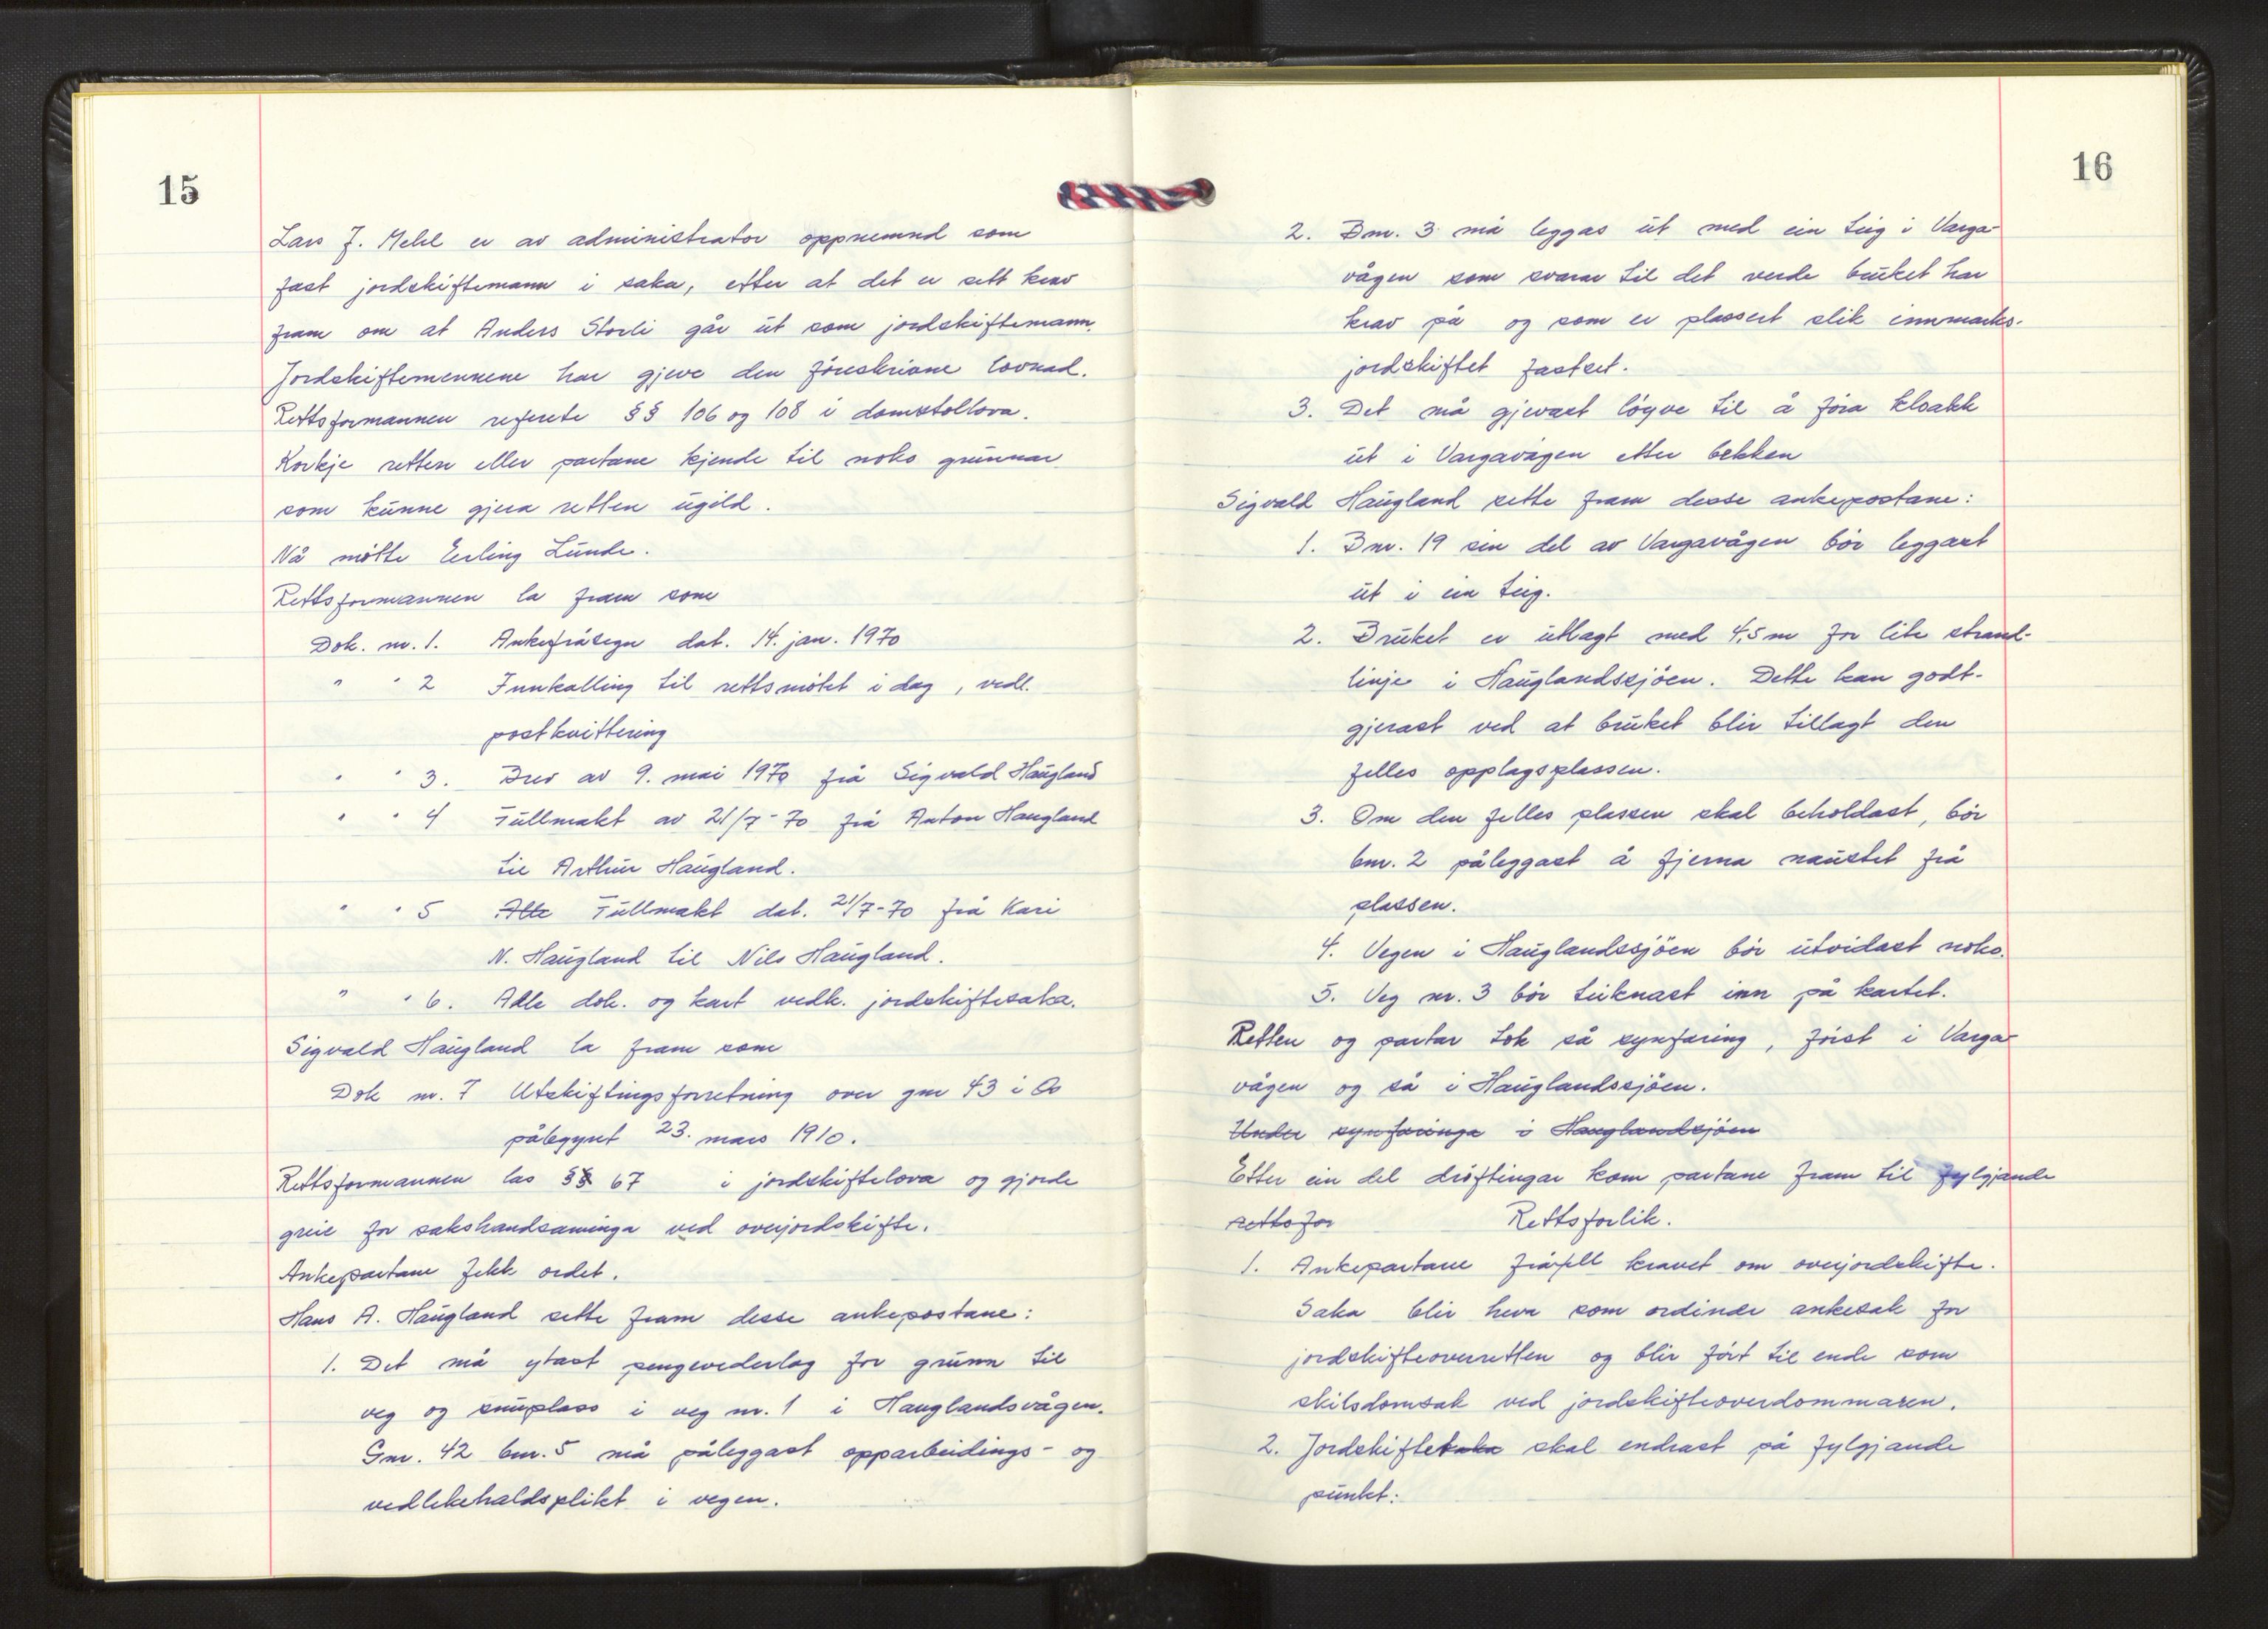 15
Lars J. Mehl er av administrator oppnemnd som
fast jordskiftemann i saka, etter at det er sett krav
fram om at Anders Storli går ut som jordskiftemann.
Jordskiftemennene har gjeve den föreskrivne lovnad.
Rettsformannen referete §§ 106 og 108 i domstollova.
Korkje retten eller partane kjende til noko grunnar
som kunne gjera retten ugild.
Nå mötte Erling Lunde.
Rettsformannen la fram som
Dok. nr. 1. Ankefråsegn dat. 14. jan. 1970
" " 2 Innkalling til rettsmötet i dag, vedl.
postkvittering
" " 3. Brev av 9. mai 1970 frå Sigvald Haugland
" " 4 Fullmakt av 21/7-70 frå Anton Haugland
til Arthur Haugland.
" " 5 Alle Fullmakt dat. 21/7-70 frå Kari
N. Haugland til Nils Haugland.
" " 6. Alle dok. og kart vedk. jordskiftesaka.
Sigvald Haugland la fram som
Dok nr. 7 Utskiftingsforretning over gnr 43 i Os
påbegynt 23. mars 1910.
Rettsformannen las §§ 67 i jordskiftelova og gjorde
greie for sakshandsaminga ved overjordskifte.
Ankepartane fekk ordet.
Hans A. Haugland sette fram desse ankepostane:
1. Det må ytast pengevederlag for grunn til
veg og snuplass i veg nr. 1 i Hauglandsvågen.
Gnr. 42 bnr. 5 må påleggast opparbeidings- og
vedlikehaldsplikt i vegen.
16
2. Bnr. 3 må leggas ut med ein teig i Varga-
vågen som svarar til det verde bruket har
krav på og som er plassert slik innmarks-
jordskiftet fastset.
3. Det må gjevast löyve til å föra kloakk
ut i Vargavågen etter bekken
Sigvald Haugland sette fram desse ankepostane:
1. Bnr. 19 sin del av Vargavågen bör leggast
ut i ein teig.
2. Bruket er utlagt med 4,5 m for lite strand-
linje i Hauglandssjöen. Dette kan godt-
gjerast ved at bruket blir tillagt den
felles opplagsplassen.
3. Om den felles plassen skal beholdast, bör
bnr. 2 påleggast å fjerna naustet frå
plassen.
4. Vegen i Hauglandssjöen bör utvidast noko.
5. Veg nr. 3 bör teiknast inn på kartet.
Retten og partar tok så synfaring, först i Varga-
vågen og så i Hauglandssjöen.
Under synfaringa i Hauglandsjöen
Etter ein del dröftingar kom partane fram til fylgjande
rettsfor Rettsforlik.
1. Ankepartane fråfell kravet om overjordskifte.
Saka blir heva som ordinær ankesak for
jordskifteoverretten og blir fört til ende som
skilsdomsak ved jordskifteoverdommaren.
2. Jordskiftet skal endrast på fylgjande
punkt: